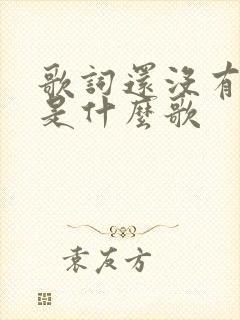 歌詞還沒有
是什麼歌
袁友方